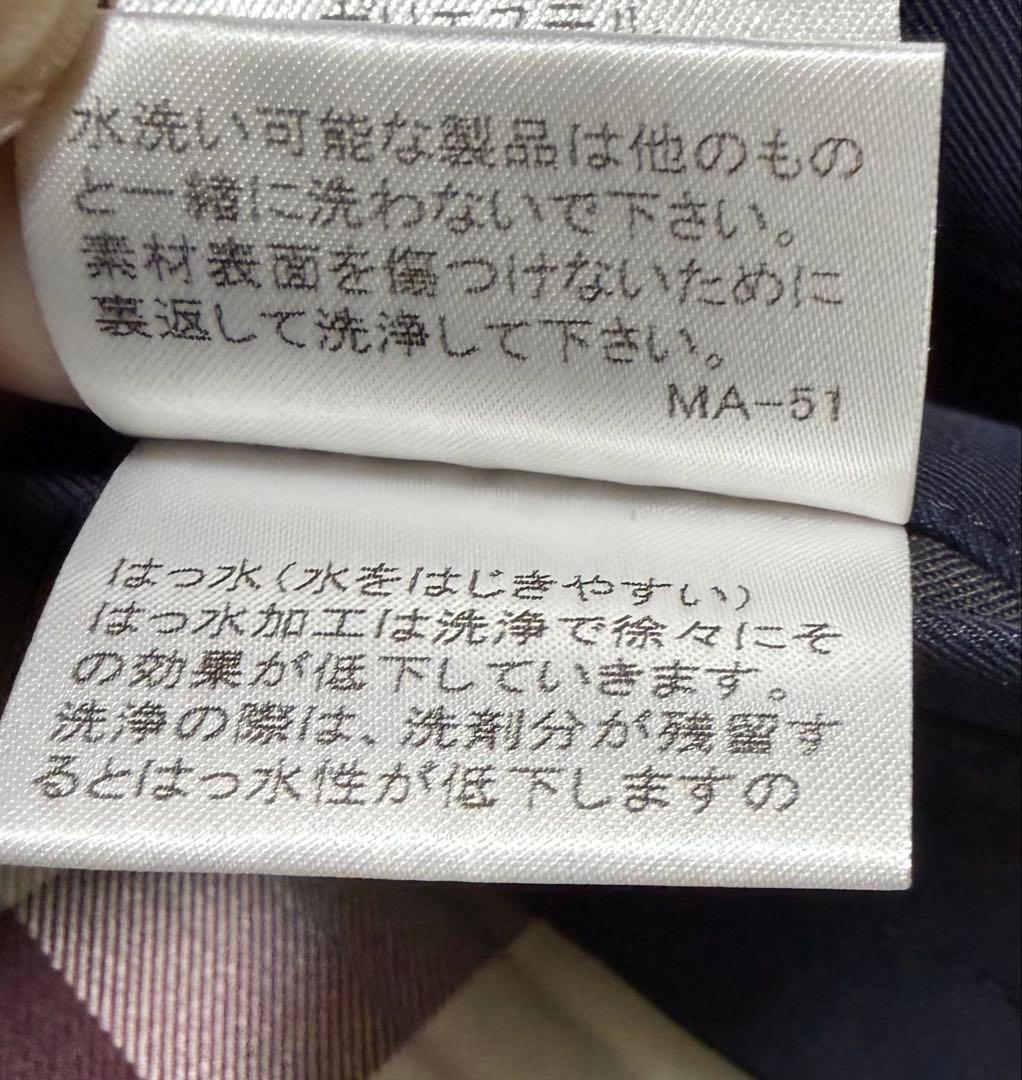 ポリエステル
水洗い可能な製品は他のもの
と一緒に洗わないで下さい。
素材表面を傷つけないために
裏返して洗浄して下さい。
MA-51
はっ水(水をはじきやすい)
はっ水加工は洗浄で徐々にそ
の効果が低下していきます。
洗浄の際は、洗剤分が残留す
るとはっ水性が低下しますの